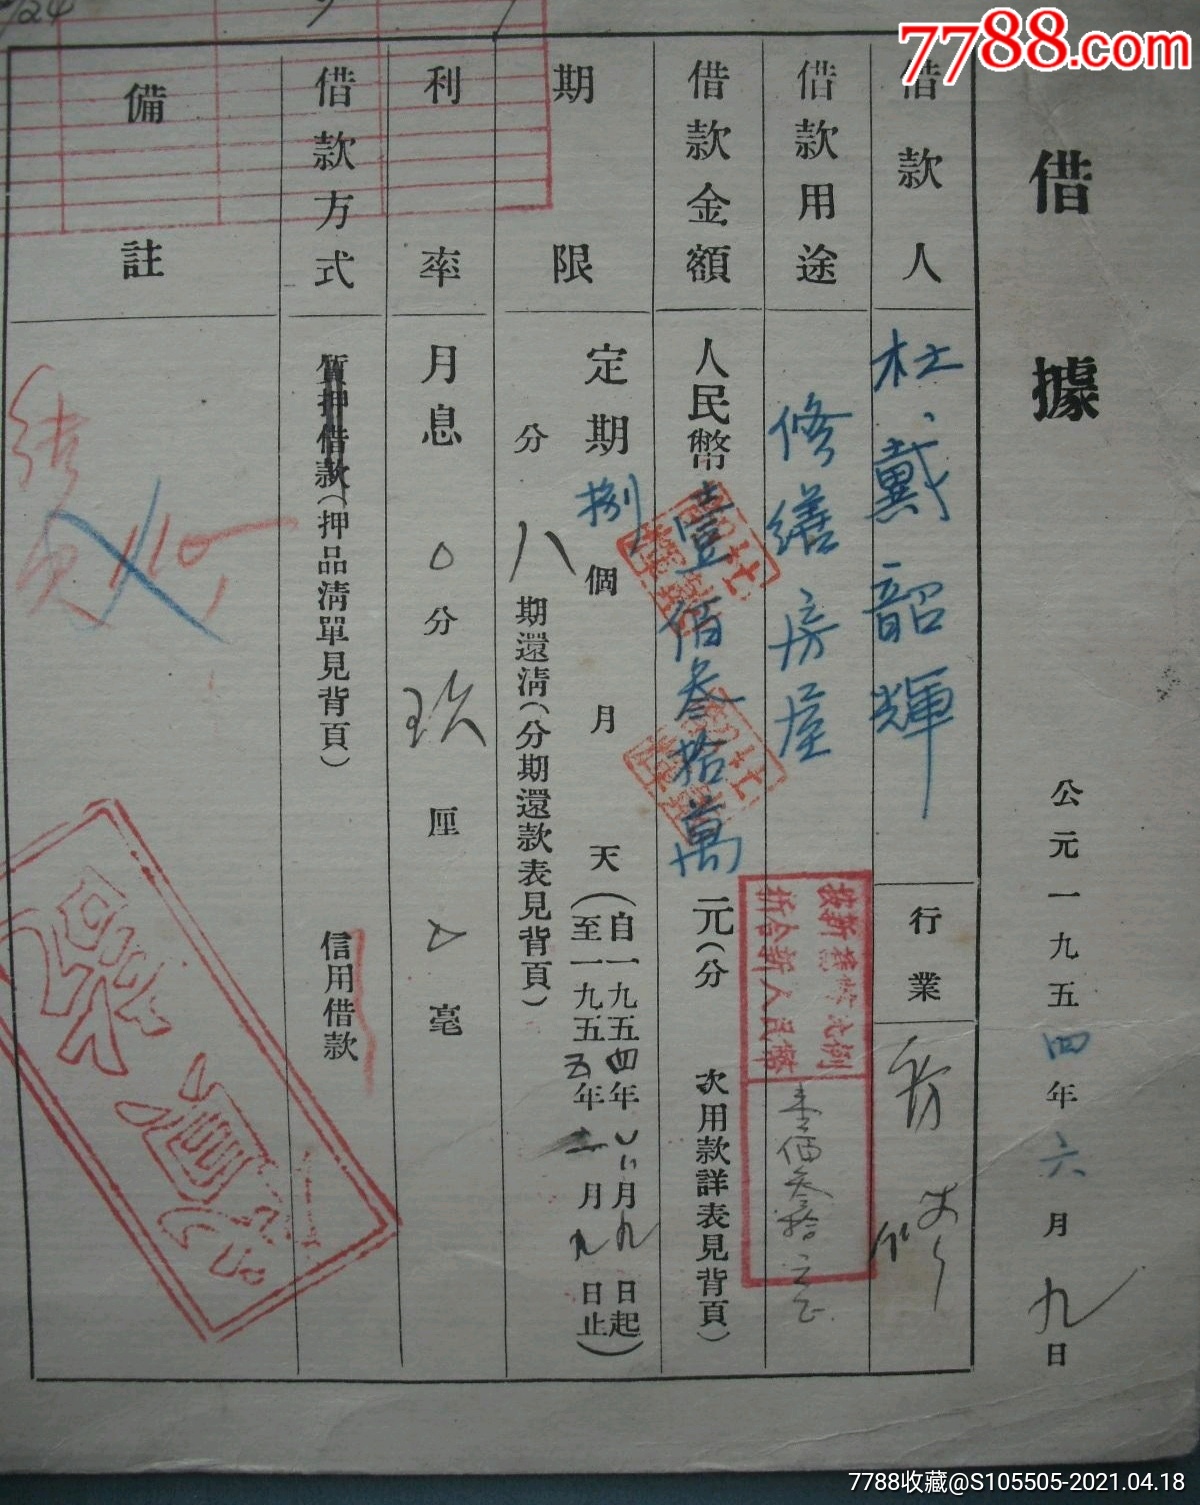 7788.com
借據
公元一九五四年六月九日
借款人
杜戴韶輝
行業
房修
借款用途
修繕房屋
按新舊幣比例
折合新人民幣
壹佰叁拾元正
借款金額
人民幣壹佰叁拾萬元(分 次用款詳表見背頁)
期限
定期捌個月 天(自一九五四年六月九日起
至一九五五年二月九日止)
分八期還清(分期還款表見背頁)
利率
月息〇分玖厘 毫
借款方式
質押借款(押品清單見背頁)
信用借款
備註
7788收藏@S105505-2021.04.18